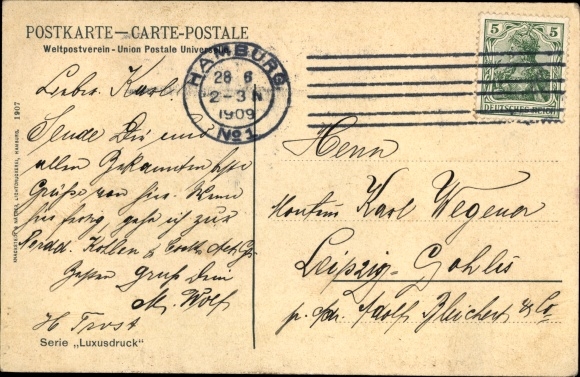 POSTKARTE—CARTE-POSTALE
Weltpostverein - Union Postale Universelle
HAMBURG
28 6
2-3 N
1909
No 1
5 5
DEUTSCHES REICH
1907
Lieber Karl
Sende Dir und
allen Bekannten beste
Grüße von hier. Wenn
hier fertig, gehe ich zur
Kollen &
Besten Gruß Dein
M. Wolf
H Trost
Herrn
Karl Wegener
Leipzig-Gohlis
p. Adr. Adolf Bleichert & Co
Serie „Luxusdruck"